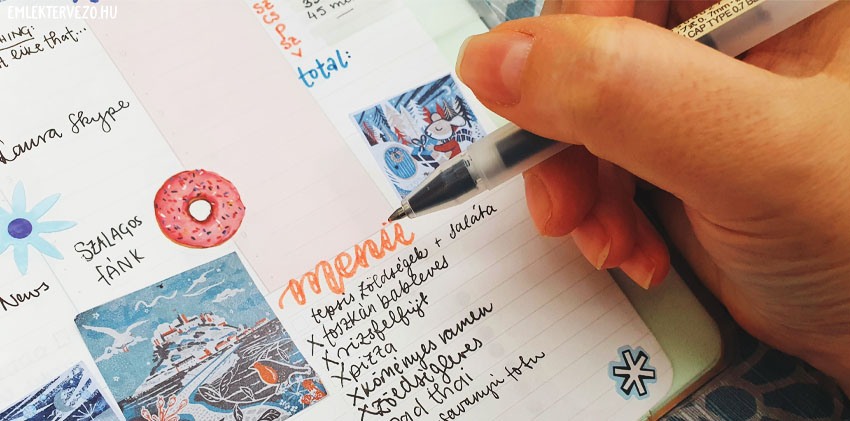 EMLEKTERVEZO.HU
HING:
I like that...
Laura Skype
News
SZALAGOS
FÁNK
SZ
CS
P
SZ
V
45 m
total:
0.7mm
CAP TYPE 0.7 B
menü
tepsis zöldségek + saláta
X toszkán bableves
X rizsfelfújt
X pizza
X köményes ramen
X zöldségleves
pad thai
savanyú tofu